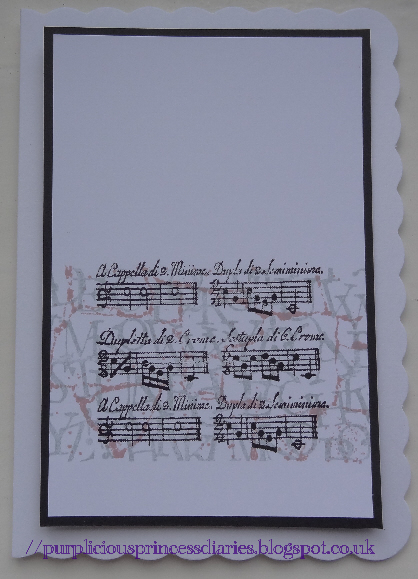 A Cappella di 2. Minime. Dupla di 2. Semiminime.
Dupletta di 2. Crome. Sestupla di 6. Crome.
A Cappella di 2. Minime. Dupla di 2. Semiminime.
//purpliciousprincessdiaries.blogspot.co.uk